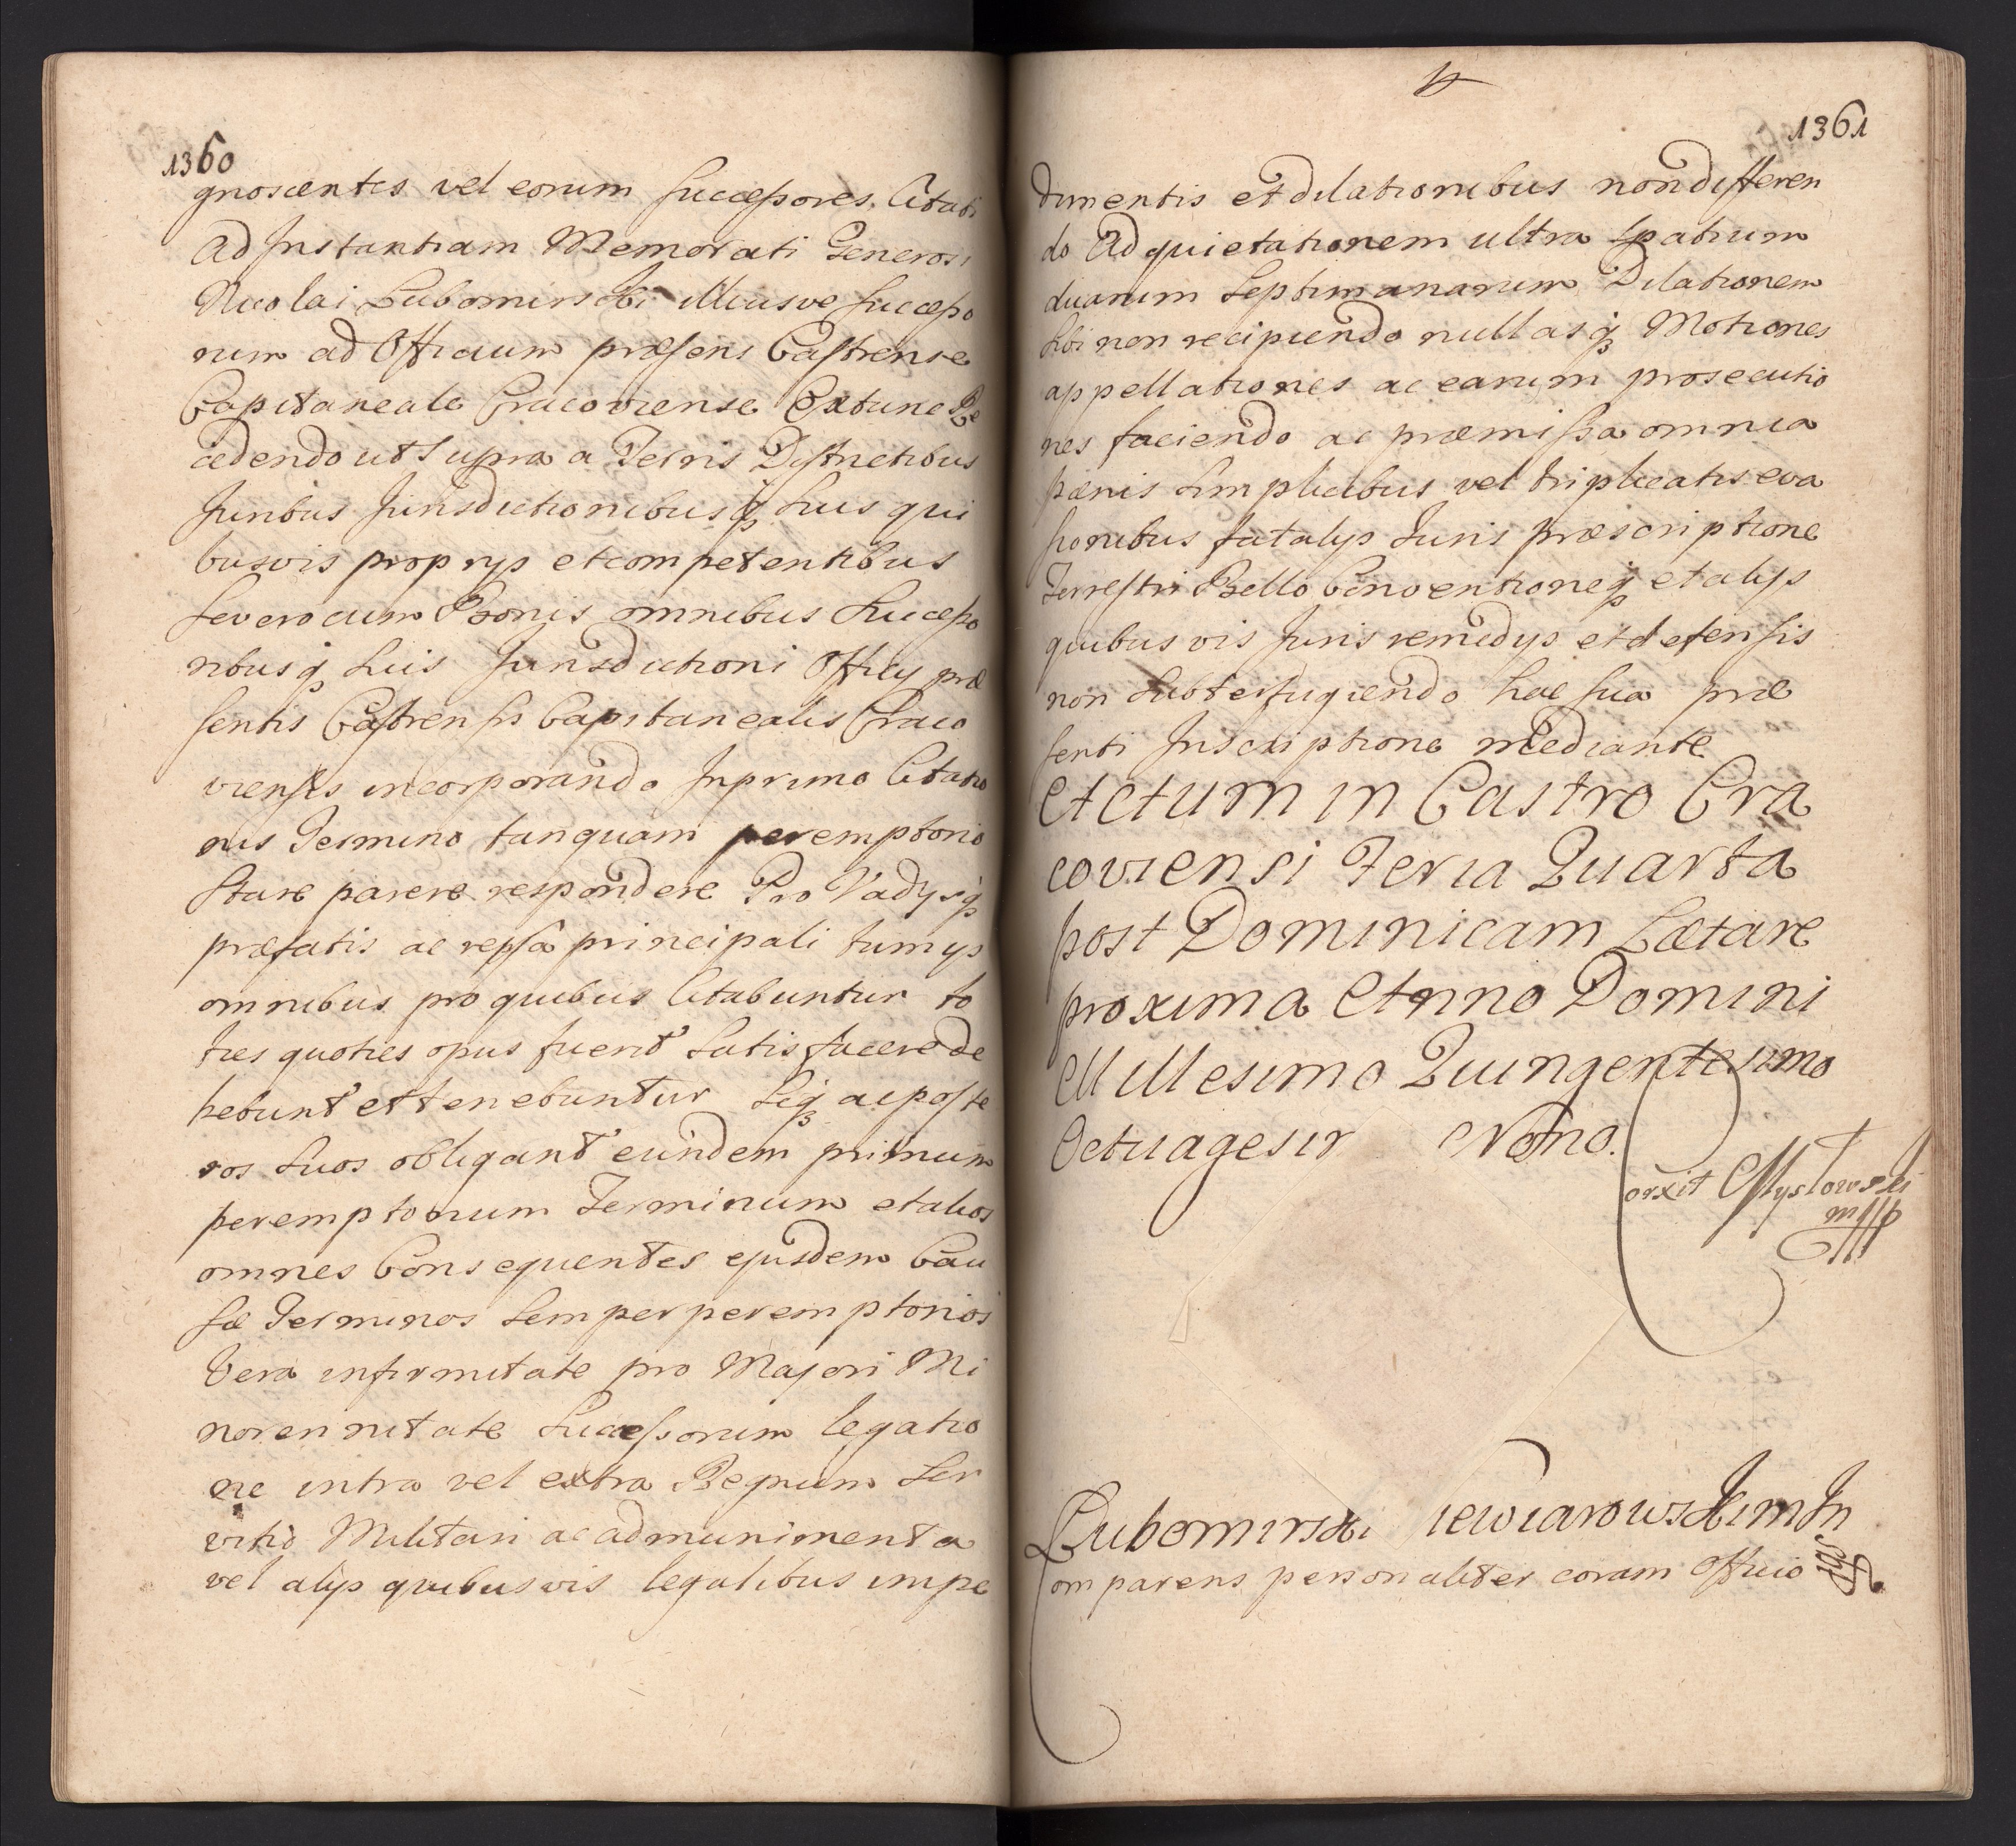 1360
gnoscentes vel eorum successores. Citati
Ad Instantiam Memorati Generosi
Nicolai Lubomirski illiusve successo
rum ad Officium præsens Castrense
Capitaneale Cracoviense Extunc Re
cedendo ut supra a Terris Districtibus
Juribus Jurisdictionibusq suis qui
busvis proprys et competentibus
se vero cum Bonis omnibus Successo
ribusq suis Jurisdictioni Officy præ
sentis Castrensis Capitanealis Craco
viensis incorporando In primo Citatio
nis Termino tanquam peremptorio
stare parere respondere Pro Vadysq
præfatis ac re ipsa principali tum ys
omnibus pro quibus Citabuntur to
ties quoties opus fuerit satisfacere de
bebunt et tenebuntur seq ac poste
ros suos obligant eundem primum
peremptorium Terminum et alios
omnes Consequentes ejusdem Cau
sæ Terminos semper peremptorios
Vera infirmitate pro Majori Mi
norennitate Successorum legatio
ne intra vel extra Regnum ser
vitio Militari ac ad munimenta
vel alys quibusvis legalibus impe
1361
dimentis et dilationibus non differen
do Ad quietationem ultra spatium
duarum septimanarum Dilationem
sibi non recipiendo nullasq Motiones
appellationes ac earum prosecutio
nes faciendo ac præmissa omnia
pænis simplicibus vel triplicatis eva
sionibus fatalys Juris præscriptione
Terrestri Bello Conventioneq et alys
quibusvis Juris remedys et defensis
non subterfugiendo hac sua præ
senti Inscriptione mediante
Actum in Castro Cra
coviensi Feria Quarta
post Dominicam Lætare
proxima Anno Domini
Millesimo Quingentesimo
Octuagesi Nono.
orxit Mysłowski
mpp
Lubomirski iewiarowskim In
omparens personaliter coram Officio